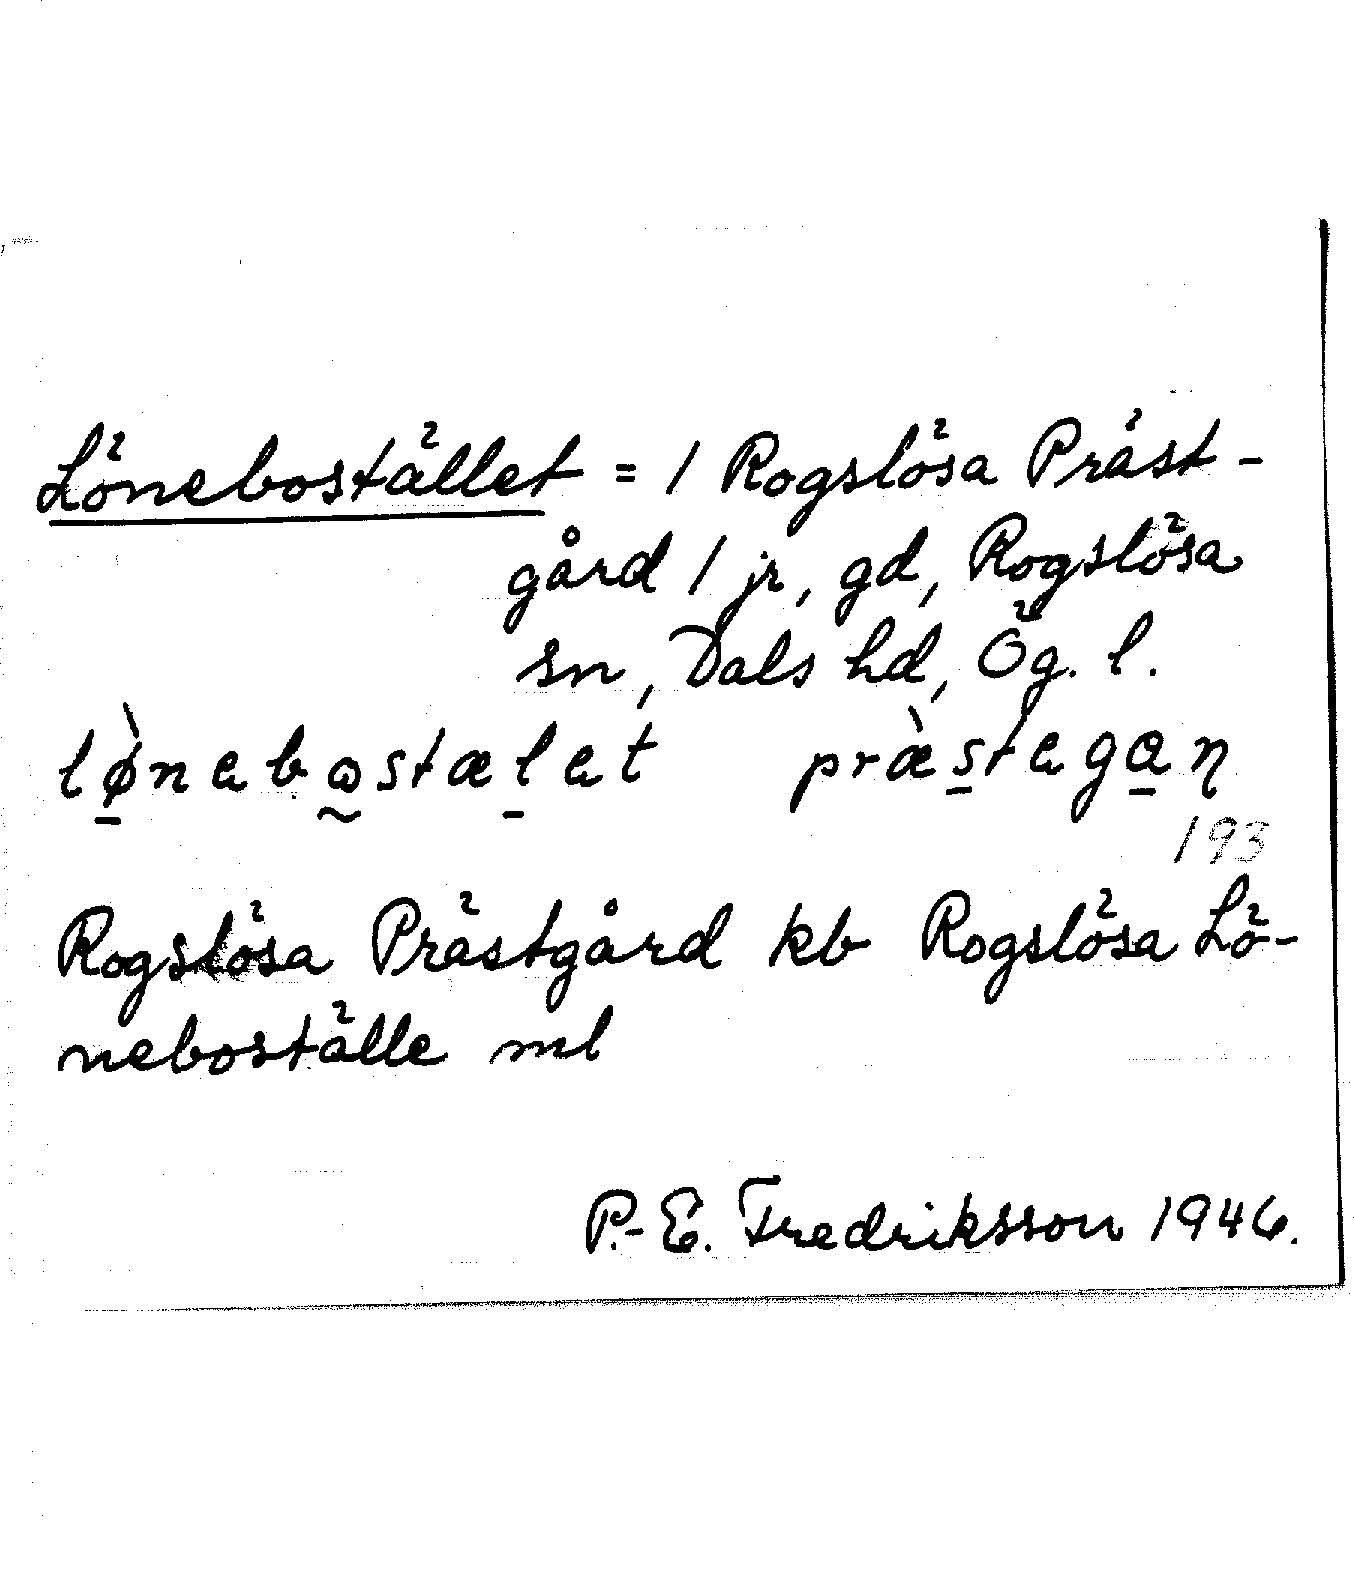 Lönebostället = / Rogslösa Präst-
gård / jr, gd, Rogslösa
sn, Dals hd, Ög. l.
lø̱̀nabɷ̰stæḻat præ̀s̱tagɑ̱ꞑ
193
Rogslösa Prästgård kb Rogslösa Lö-
neboställe ml
P.-E. Fredriksson 1946.